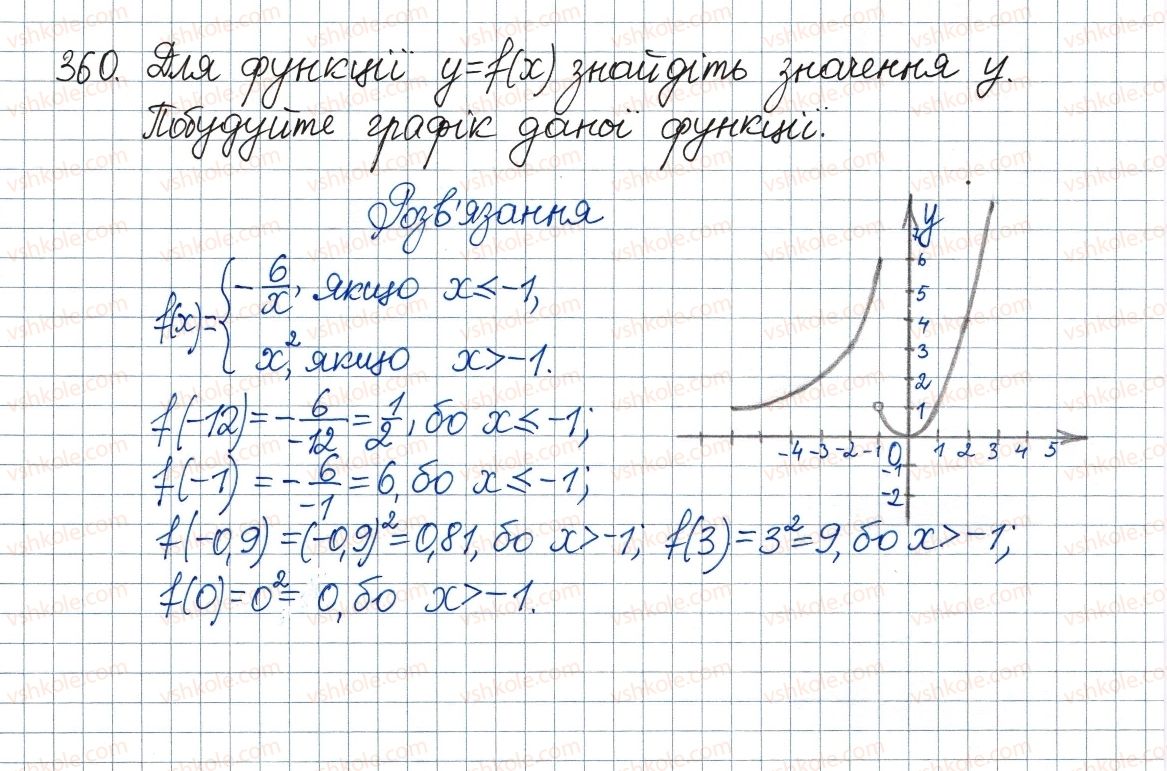 360. Для функції y=f(x) знайдіть значення y.
Побудуйте графік даної функції.
Розв'язання
f(x)={ -6/x, якщо x≤-1,
x², якщо x>-1.
f(-12)=-6/-12=1/2, бо x≤-1;
f(-1)=-6/-1=6, бо x≤-1;
f(-0,9)=(-0,9)²=0,81, бо x>-1; f(3)=3²=9, бо x>-1;
f(0)=0²=0, бо x>-1.
y
6
5
4
3
2
1
-4 -3 -2 -1 0 1 2 3 4 5
-1
-2
vshkole.com